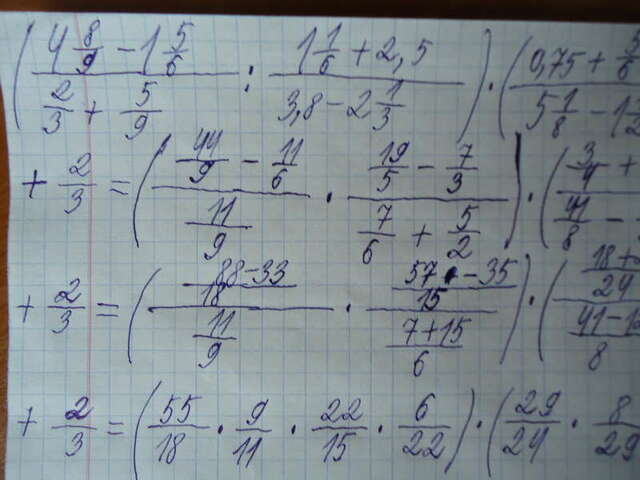 (4 8/9 − 1 5/6)/(2/3 + 5/9) : (1 1/6 + 2,5)/(3,8 − 2 1/3)) · ((0,75 + 5/6)/(5 1/8 − 1
+ 2/3 = ((44/9 − 11/6)/(11/9) · (19/5 − 7/3)/(7/6 + 5/2)) · ((3/4 +)/(41/8 −
+ 2/3 = ((88−33)/18/(11/9) · (57 − 35)/15/((7+15)/6)) · ((18+)/24/((41−1)/8
+ 2/3 = (55/18 · 9/11 · 22/15 · 6/22) · (29/24 · 8/29